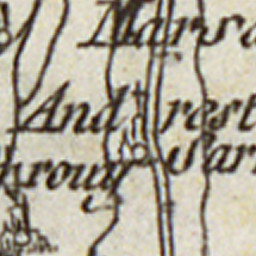 Marsa
And rest
hrouy Sar